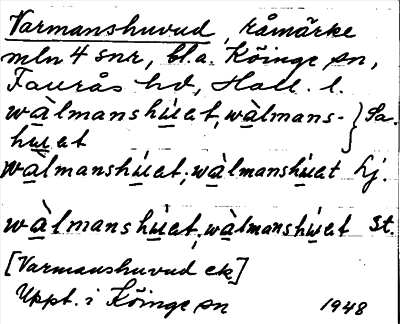 Varmanshuvud, råmärke
mln 4 snr, bl.a. Köinge sn,
Faurås hd, Hall. l.
wàlmanshúet, wàlmans- } Sa.
huet
wàlmanshúet, wàlmanshúet Lj.
wàlmanshúet, wàlmanshúet St.
[Varmanshuvud ek]
Uppt. i Köinge sn 1948